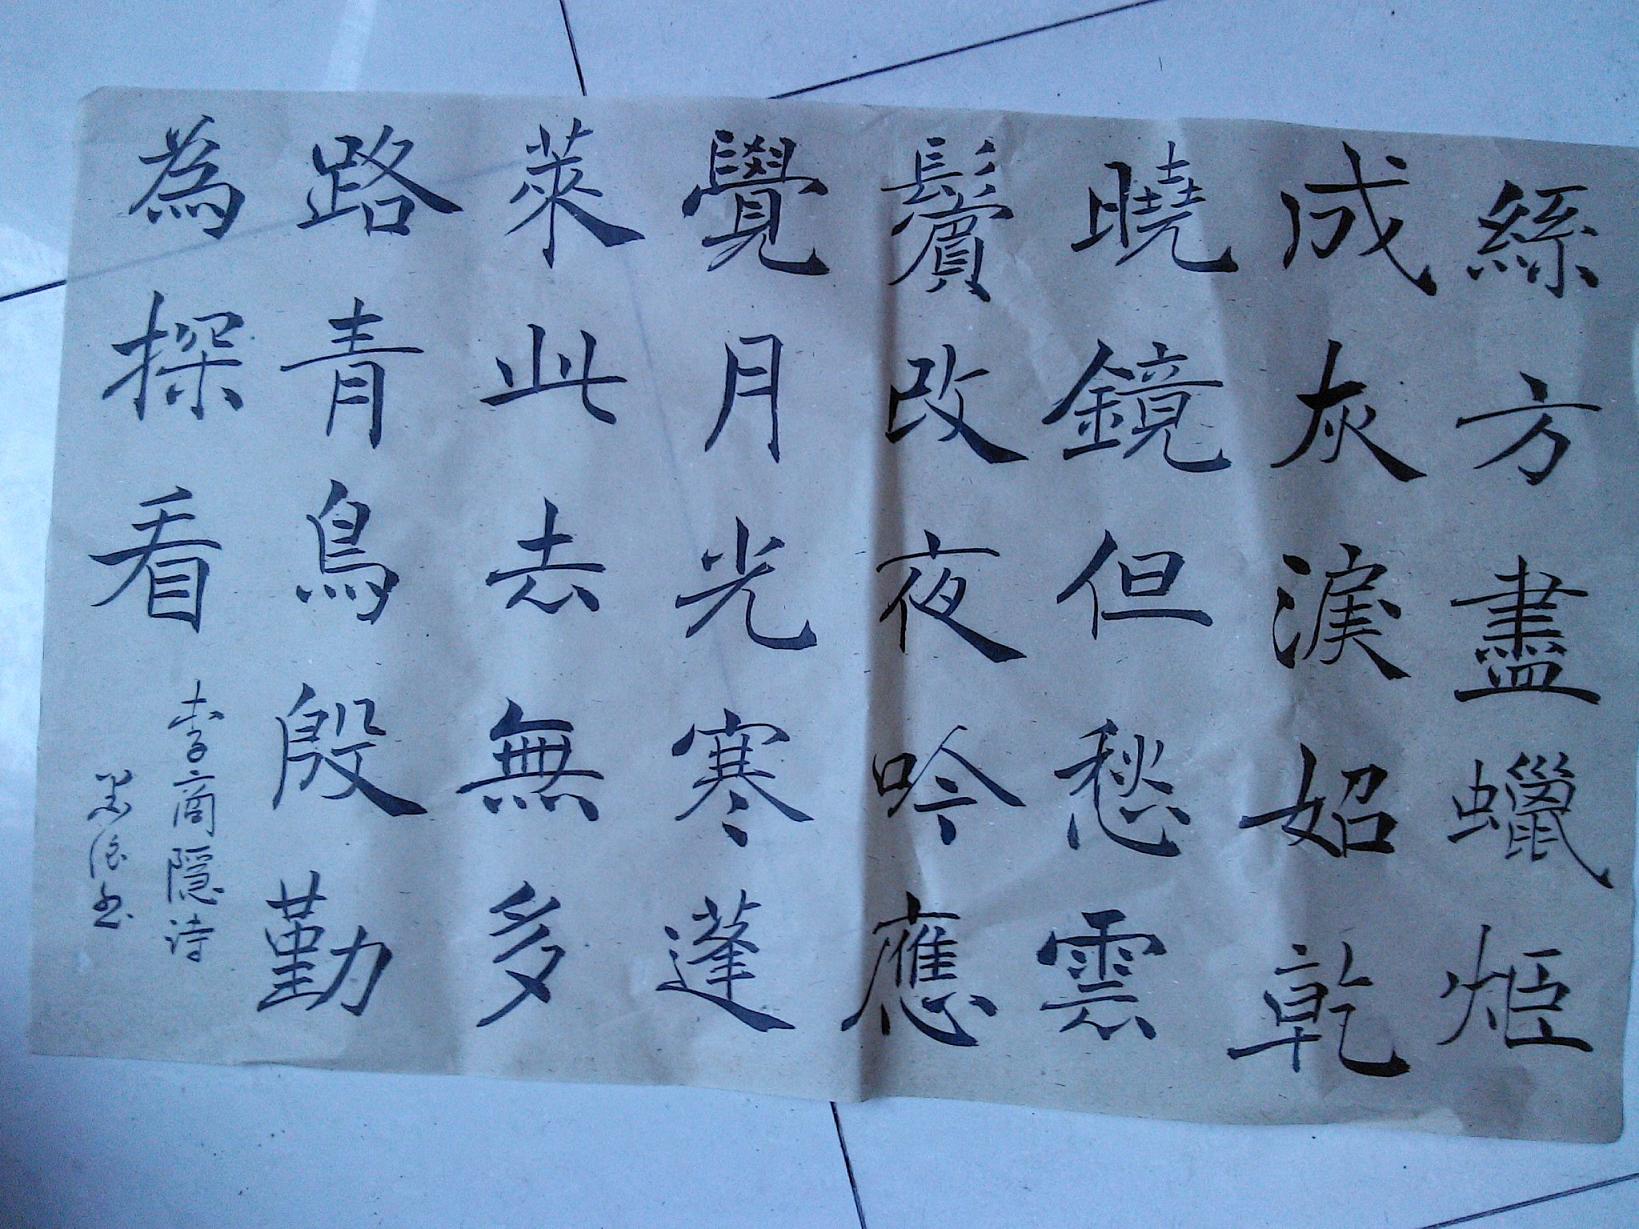 絲方盡蠟炬
成灰淚始乾
曉鏡但愁雲
鬢改夜吟應
覺月光寒蓬
萊此去無多
路青鳥殷勤
為探看
李商隱诗
书